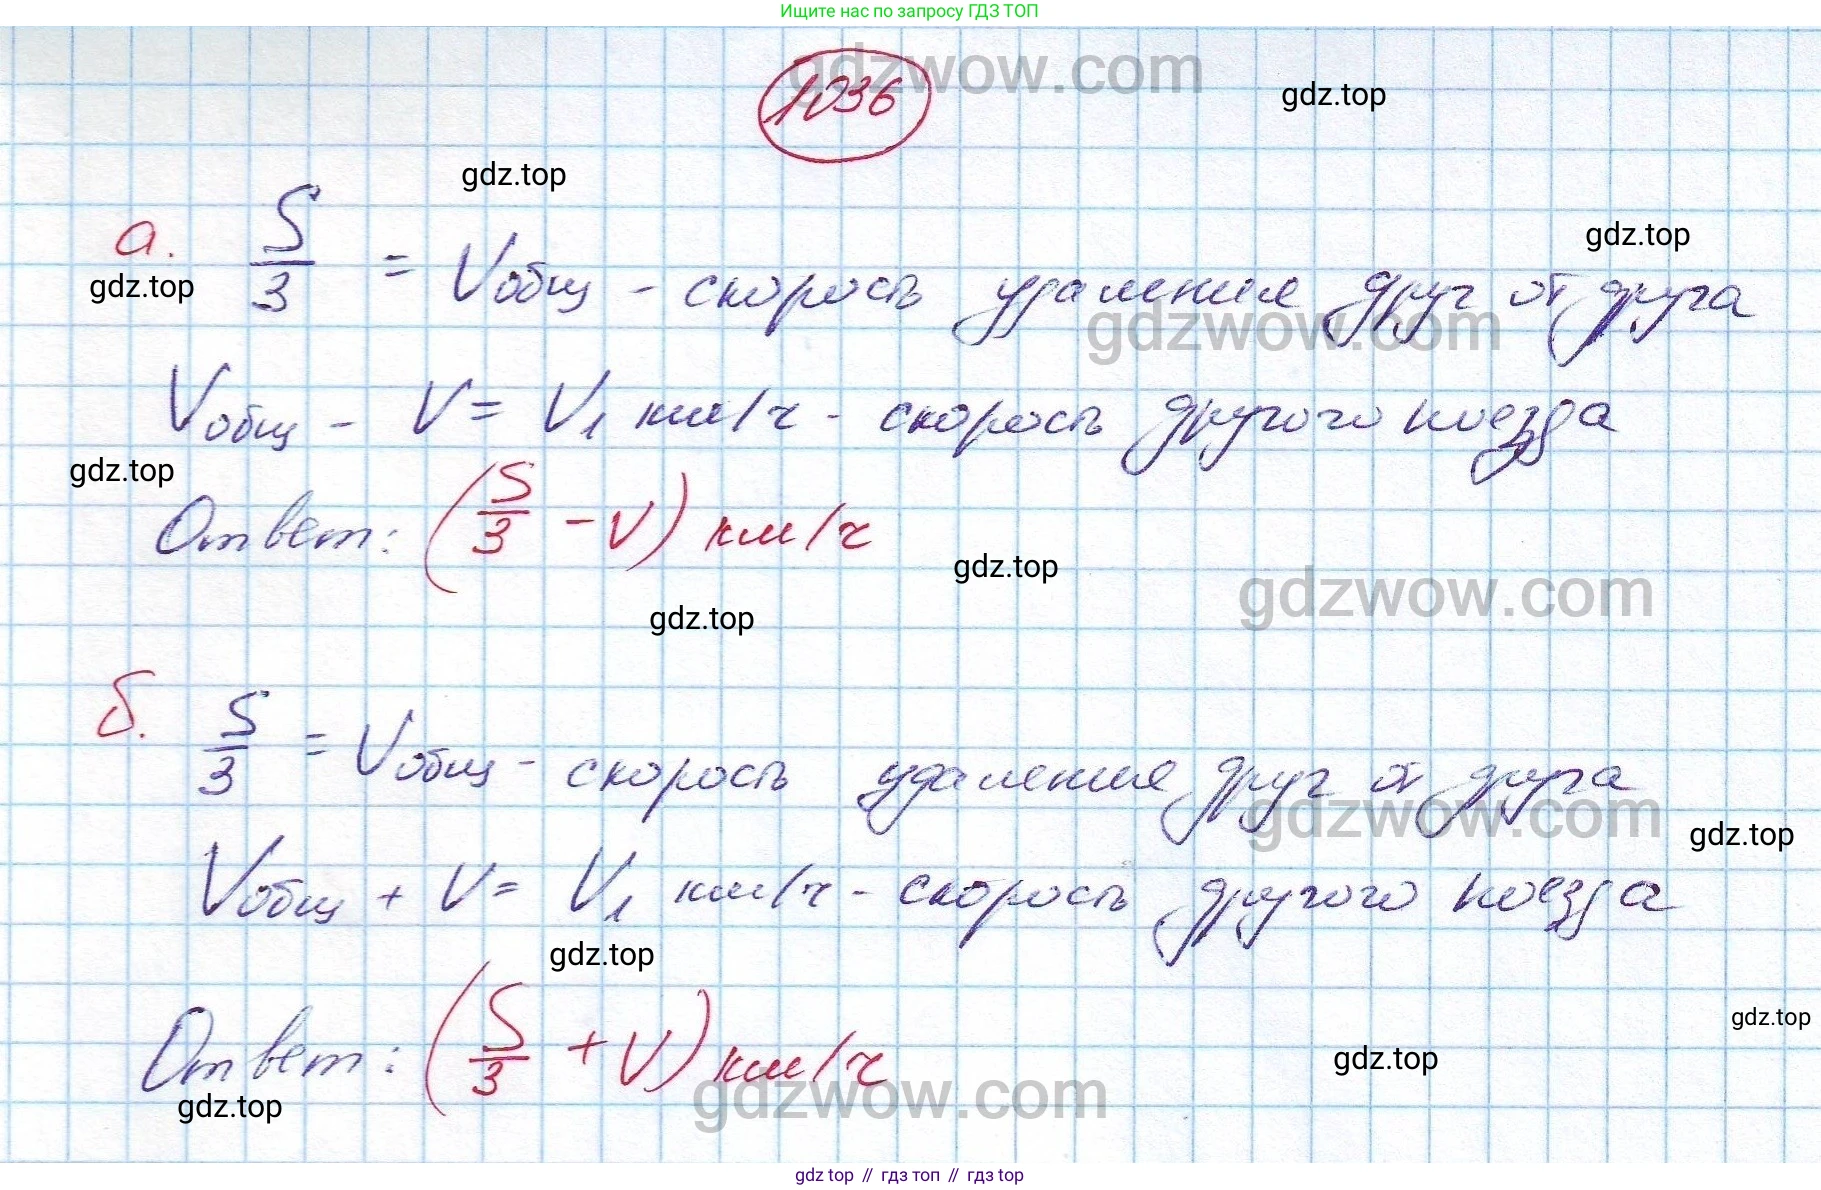 Ищите нас по запросу ГДЗ ТОП
gdzwow.com
1036
gdz.top
gdz.top
а. S/3 = Vобщ - скорость удаления друг от друга
gdz.top
gdz.top
gdzwow.com
Vобщ - V = V₁ км/ч - скорость другого поезда
gdz.top
Ответ: (S/3 - V) км/ч
gdz.top
gdzwow.com
gdz.top
б. S/3 = Vобщ - скорость удаления друг от друга
gdzwow.com
gdz.top
Vобщ + V = V₁ км/ч - скорость другого поезда
gdz.top
gdz.top
Ответ: (S/3 + V) км/ч
gdz.top
gdzwow.com
gdz.top
gdz top // гдз топ // гдз top